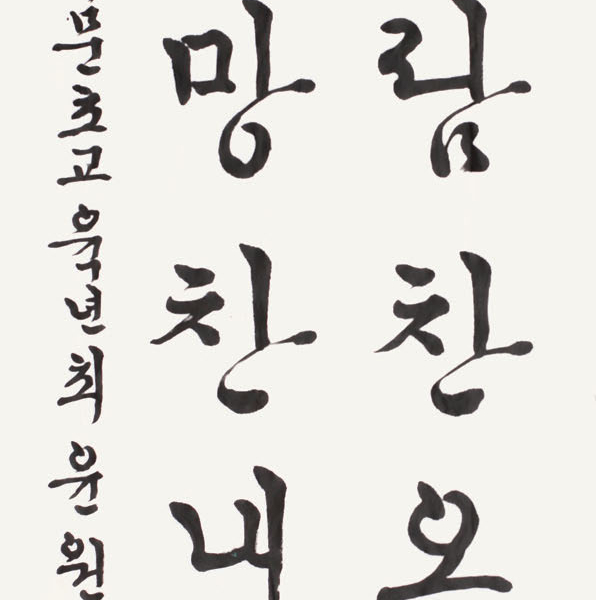 람찬오
망찬내
문초교육년최윤원